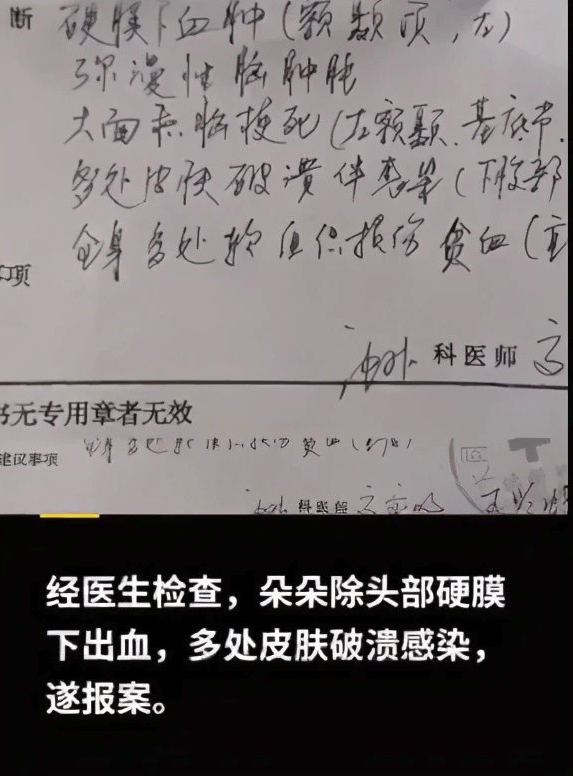 断 硬膜下血肿(额颞顶,左)
弥漫性脑肿胀
大面积脑梗死(左额颞.基底节.
多处皮肤破溃伴感染(下腹部
全身多处软组织损伤 贫血(重
项
科医师
书无专用章者无效
建议事项 全身多处软组织损伤 贫血
科医师
经医生检查，朵朵除头部硬膜
下出血，多处皮肤破溃感染，
遂报案。